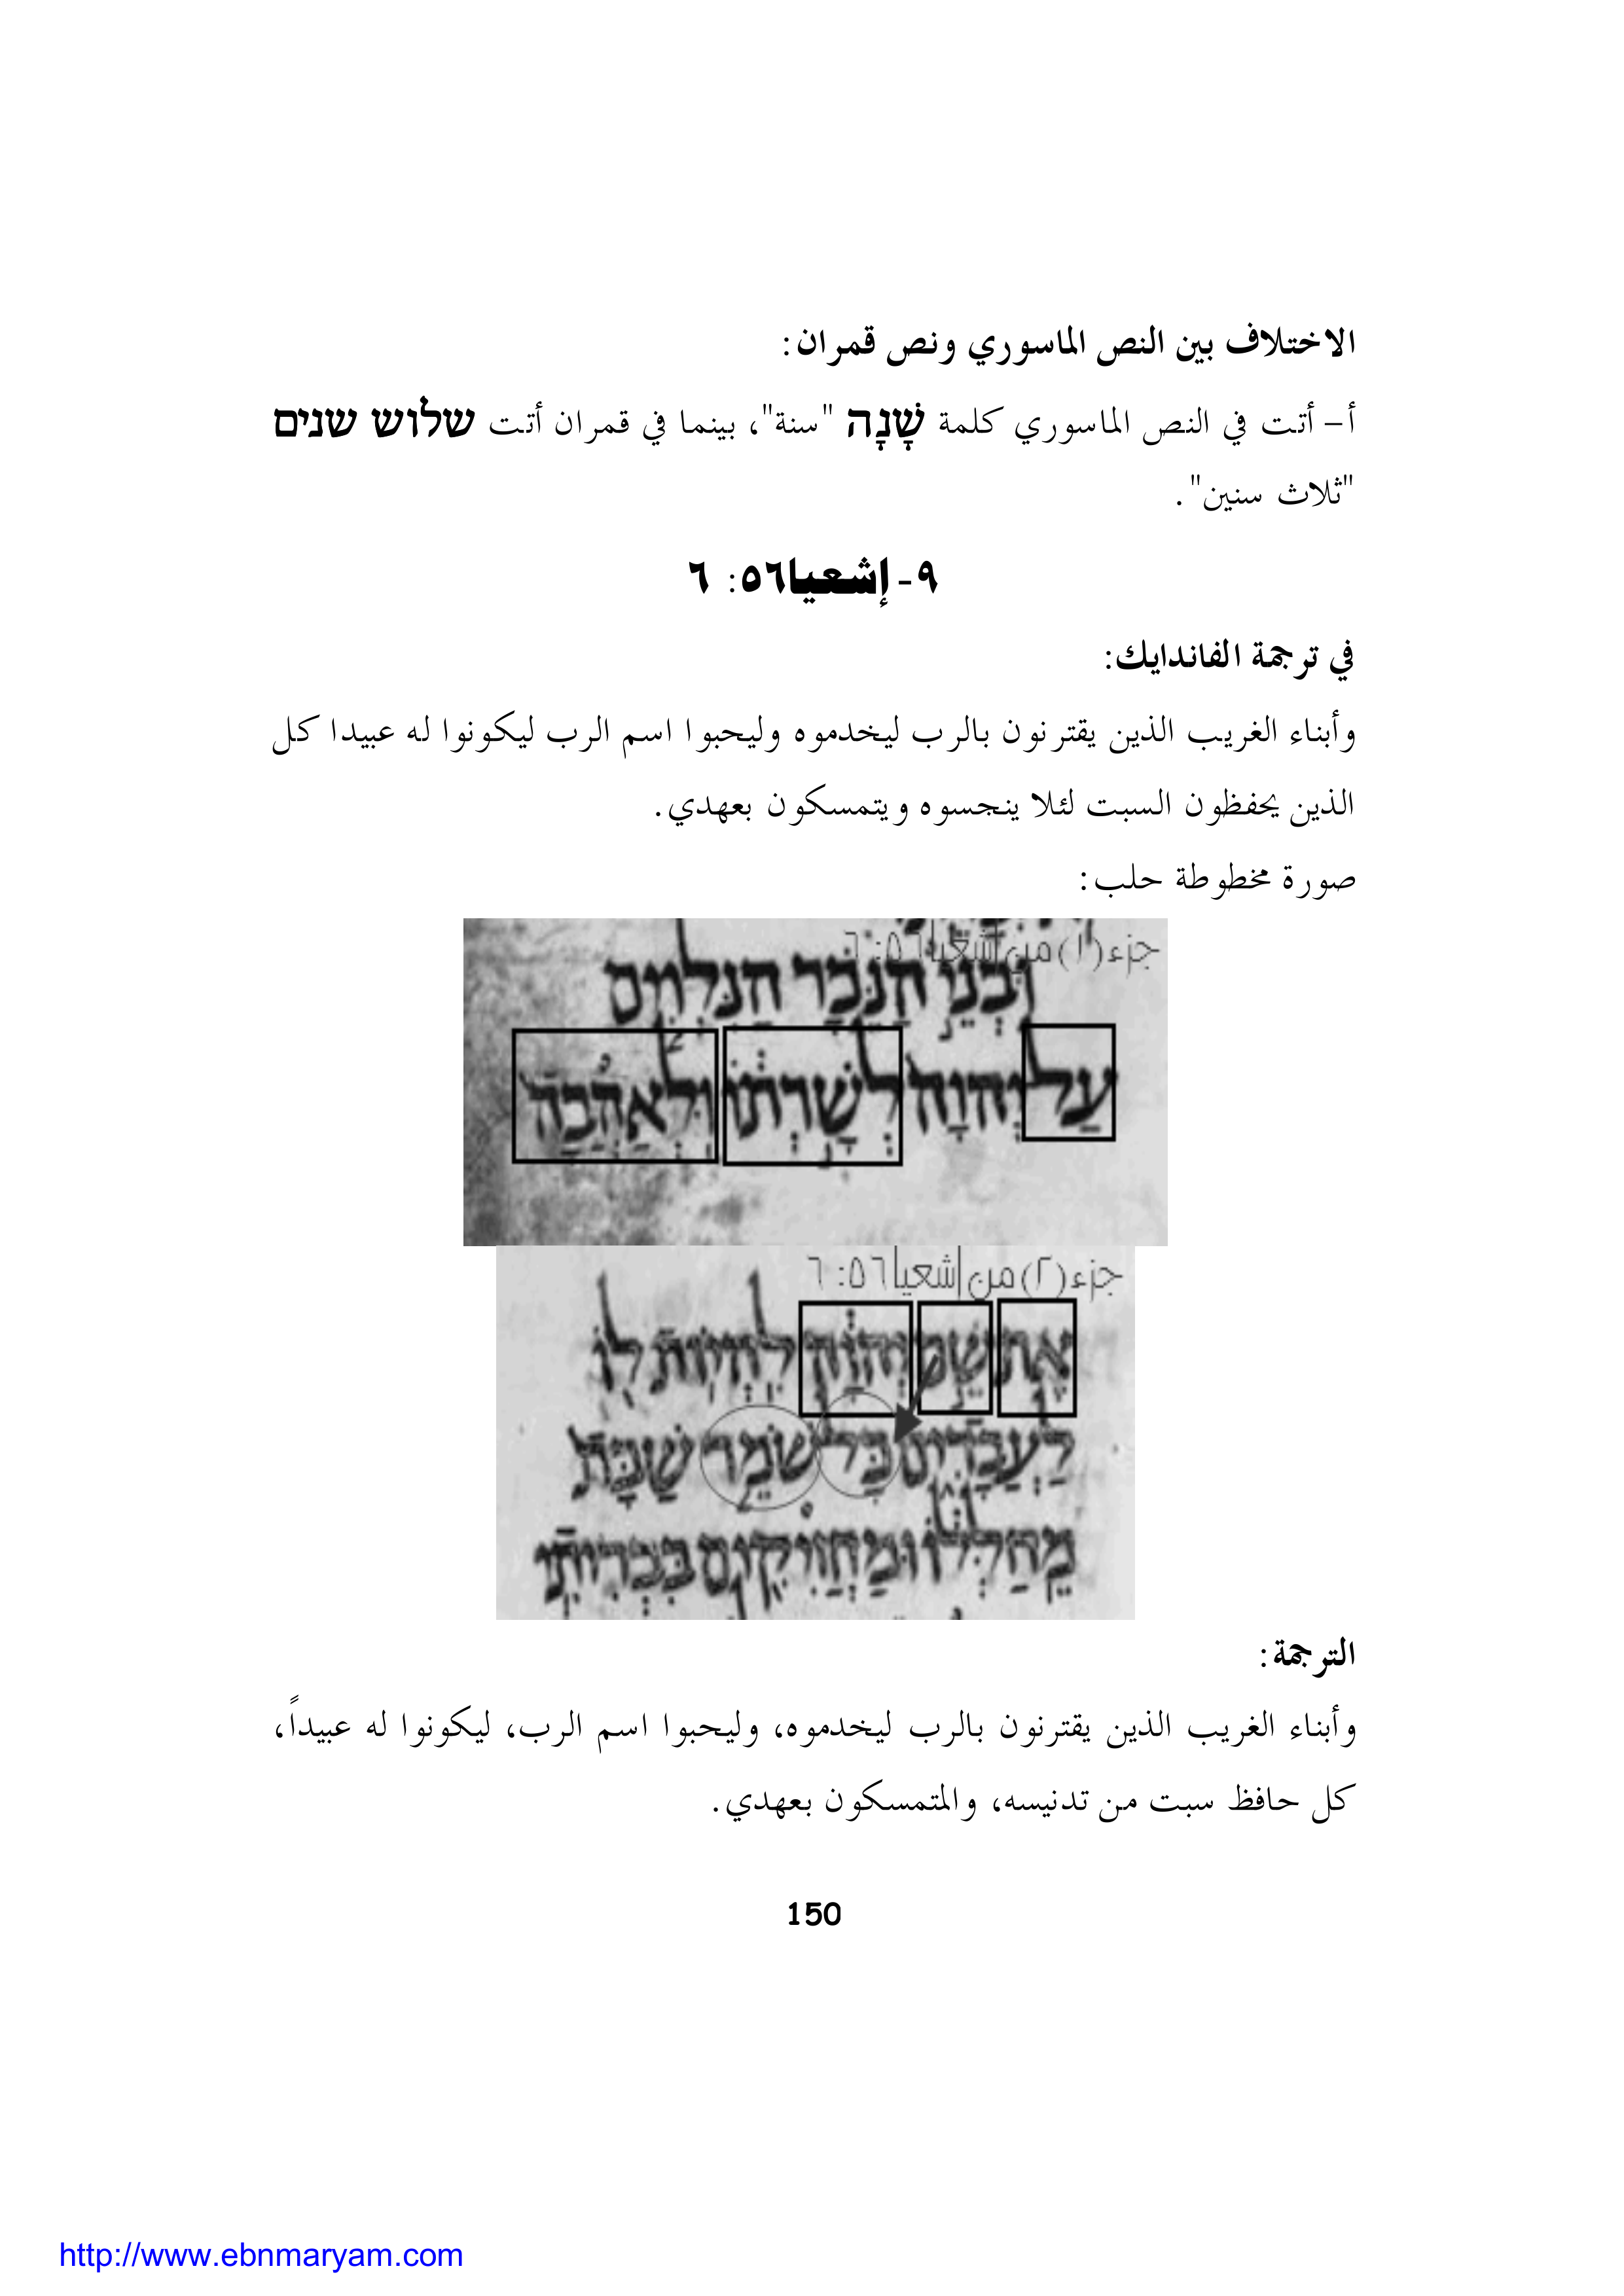 الاختلاف بين النص الماسوري ونص قمران:
أ– أتت في النص الماسوري كلمة שָׁנָה "سنة"، بينما في قمران أتت שלוש שנים
"ثلاث سنين".
٩- إشعيا٥٦: ٦
في ترجمة الفاندايك:
وأبناء الغريب الذين يقترنون بالرب ليخدموه وليحبوا اسم الرب ليكونوا له عبيدا كل
الذين يحفظون السبت لئلا ينجسوه ويتمسكون بعهدي.
صورة مخطوطة حلب:
جزء(١)من إشعيا٥٦: ٦
וּבְנֵי הַנֵּכָר הַנִּלְוִים
עַל יְהוָה לְשָׁרְתוֹ וּלְאַהֲבָה
جزء(٢)من إشعيا٥٦: ٦
אֶת שֵׁם יְהוָה לִהְיוֹת לוֹ
לַעֲבָדִים כָּל שֹׁמֵר שַׁבָּת
מֵחַלְּלוֹ וּמַחֲזִיקִים בִּבְרִיתִי
الترجمة:
وأبناء الغريب الذين يقترنون بالرب ليخدموه، وليحبوا اسم الرب، ليكونوا له عبيداً،
كل حافظ سبت من تدنيسه، والمتمسكون بعهدي.
150
http://www.ebnmaryam.com